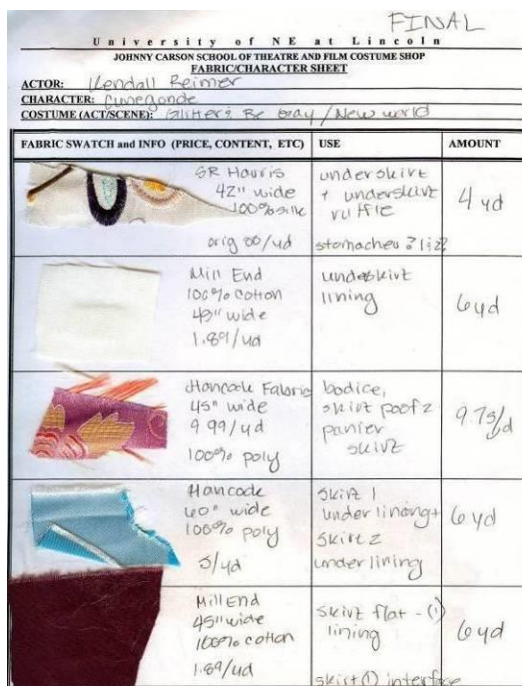 FINAL
University of NE at Lincoln
JOHNNY CARSON SCHOOL OF THEATRE AND FILM COSTUME SHOP
FABRIC/CHARACTER SHEET
ACTOR: Kendall Reimer
CHARACTER: Cunegonde
COSTUME (ACT/SCENE): Glitter & Be Gay / New world
FABRIC SWATCH and INFO (PRICE, CONTENT, ETC) USE AMOUNT
SR Harris
42" wide
100% silk
orig 00/yd
underskirt
+ underskirt
ruffle
4 yd
Mill End
100% cotton
45" wide
1.89/yd
underskirt
lining
6 yd
Hancock Fabric
45" wide
9.99/yd
100% poly
bodice,
skirt poof 2
panier
skirt
9.75/yd
Hancock
60" wide
100% poly
5/yd
skirt 1
underlining +
skirt 2
underlining
6 yd
Mill End
45" wide
100% cotton
1.89/yd
skirt flat - (1)
lining
skirt (1) interface
6 yd